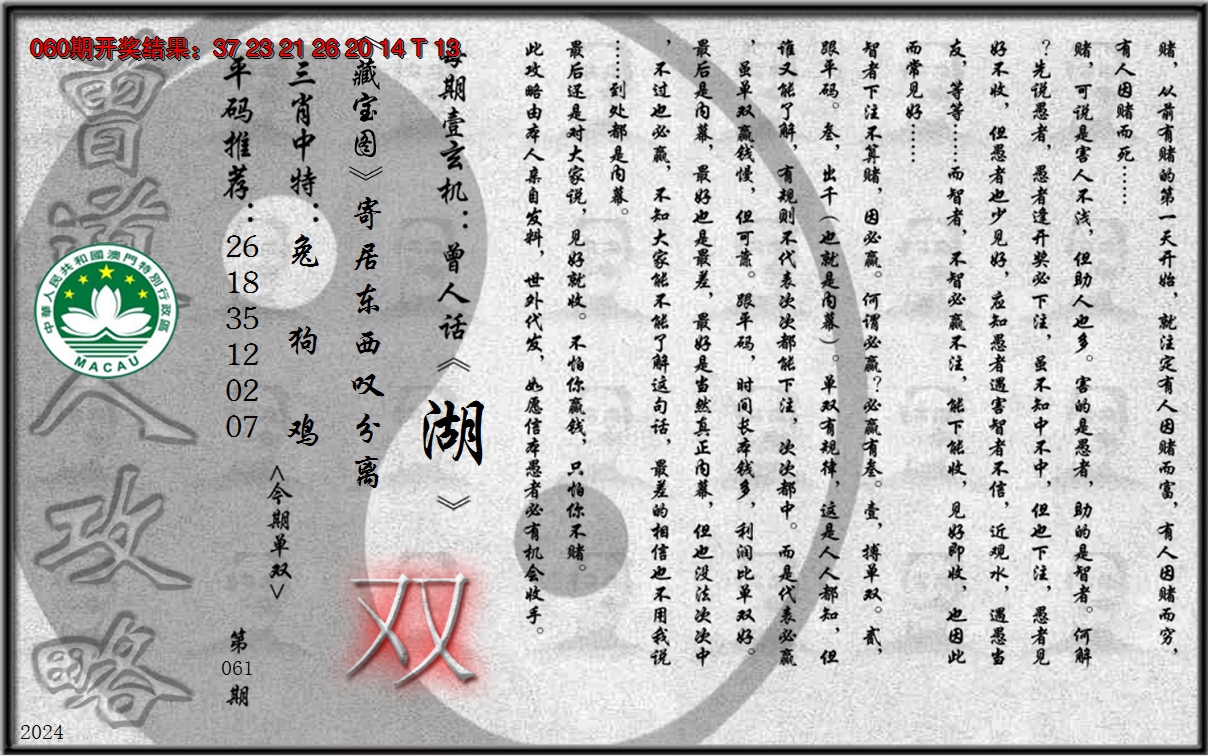 060期开奖结果：37 23 21 26 20 14 T 13
赌，从前有赌的第一天开始，就注定有人因赌而富，有人因赌而穷，
有人因赌而死……
赌，可说是害人不浅，但助人也多。害的是愚者，助的是智者。何解
？先说愚者，愚者逢开奖必下注，虽不知中不中，但也下注，愚者见
好不收，但愚者也少见好，应知愚者遇害智者不信，近观水，遇愚当
友，等等……而智者，不智必赢不注，能下能收，见好即收，也因此
而常见好……
智者下注不算赌，因必赢。何谓必赢？必赢有叁。壹，搏单双。贰，
跟平码。叁，出千（也就是内幕）。单双有规律，这是人人都知，但
谁又能了解，有规则不代表次次都能下注，次次都中。而是代表必赢
，虽单双赢钱慢，但可靠。跟平码，时间长本钱多，利润比单双好。
最后是内幕，最好也是最差，最好是当然真正内幕，但也没法次次中
，不过也必赢，不知大家能不能了解这句话，最差的相信也不用我说
……到处都是内幕。
最后还是对大家说，见好就收。不怕你赢钱，只怕你不赌。
此攻略由本人亲自发料，世外代发，如愿信本愚者必有机会收手。
每期壹玄机：曾人话《湖》
《藏宝图》寄居东西叹分离
双
三肖中特：兔 狗 鸡
<今期单双>
平码推荐：26 18 35 12 02 07
第061期
曾道人攻略
中華人民共和國澳門特別行政區
MACAU
2024